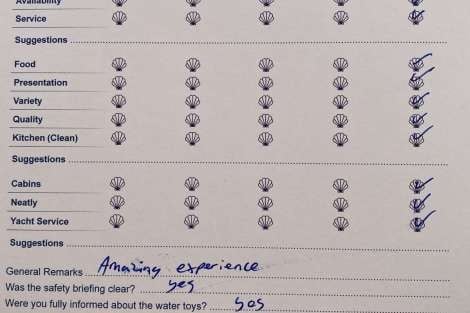 Availability
Service
Suggestions
Food
Presentation
Variety
Quality
Kitchen (Clean)
Suggestions
Cabins
Neatly
Yacht Service
Suggestions
General Remarks Amazing experience
Was the safety briefing clear? yes
Were you fully informed about the water toys? yes